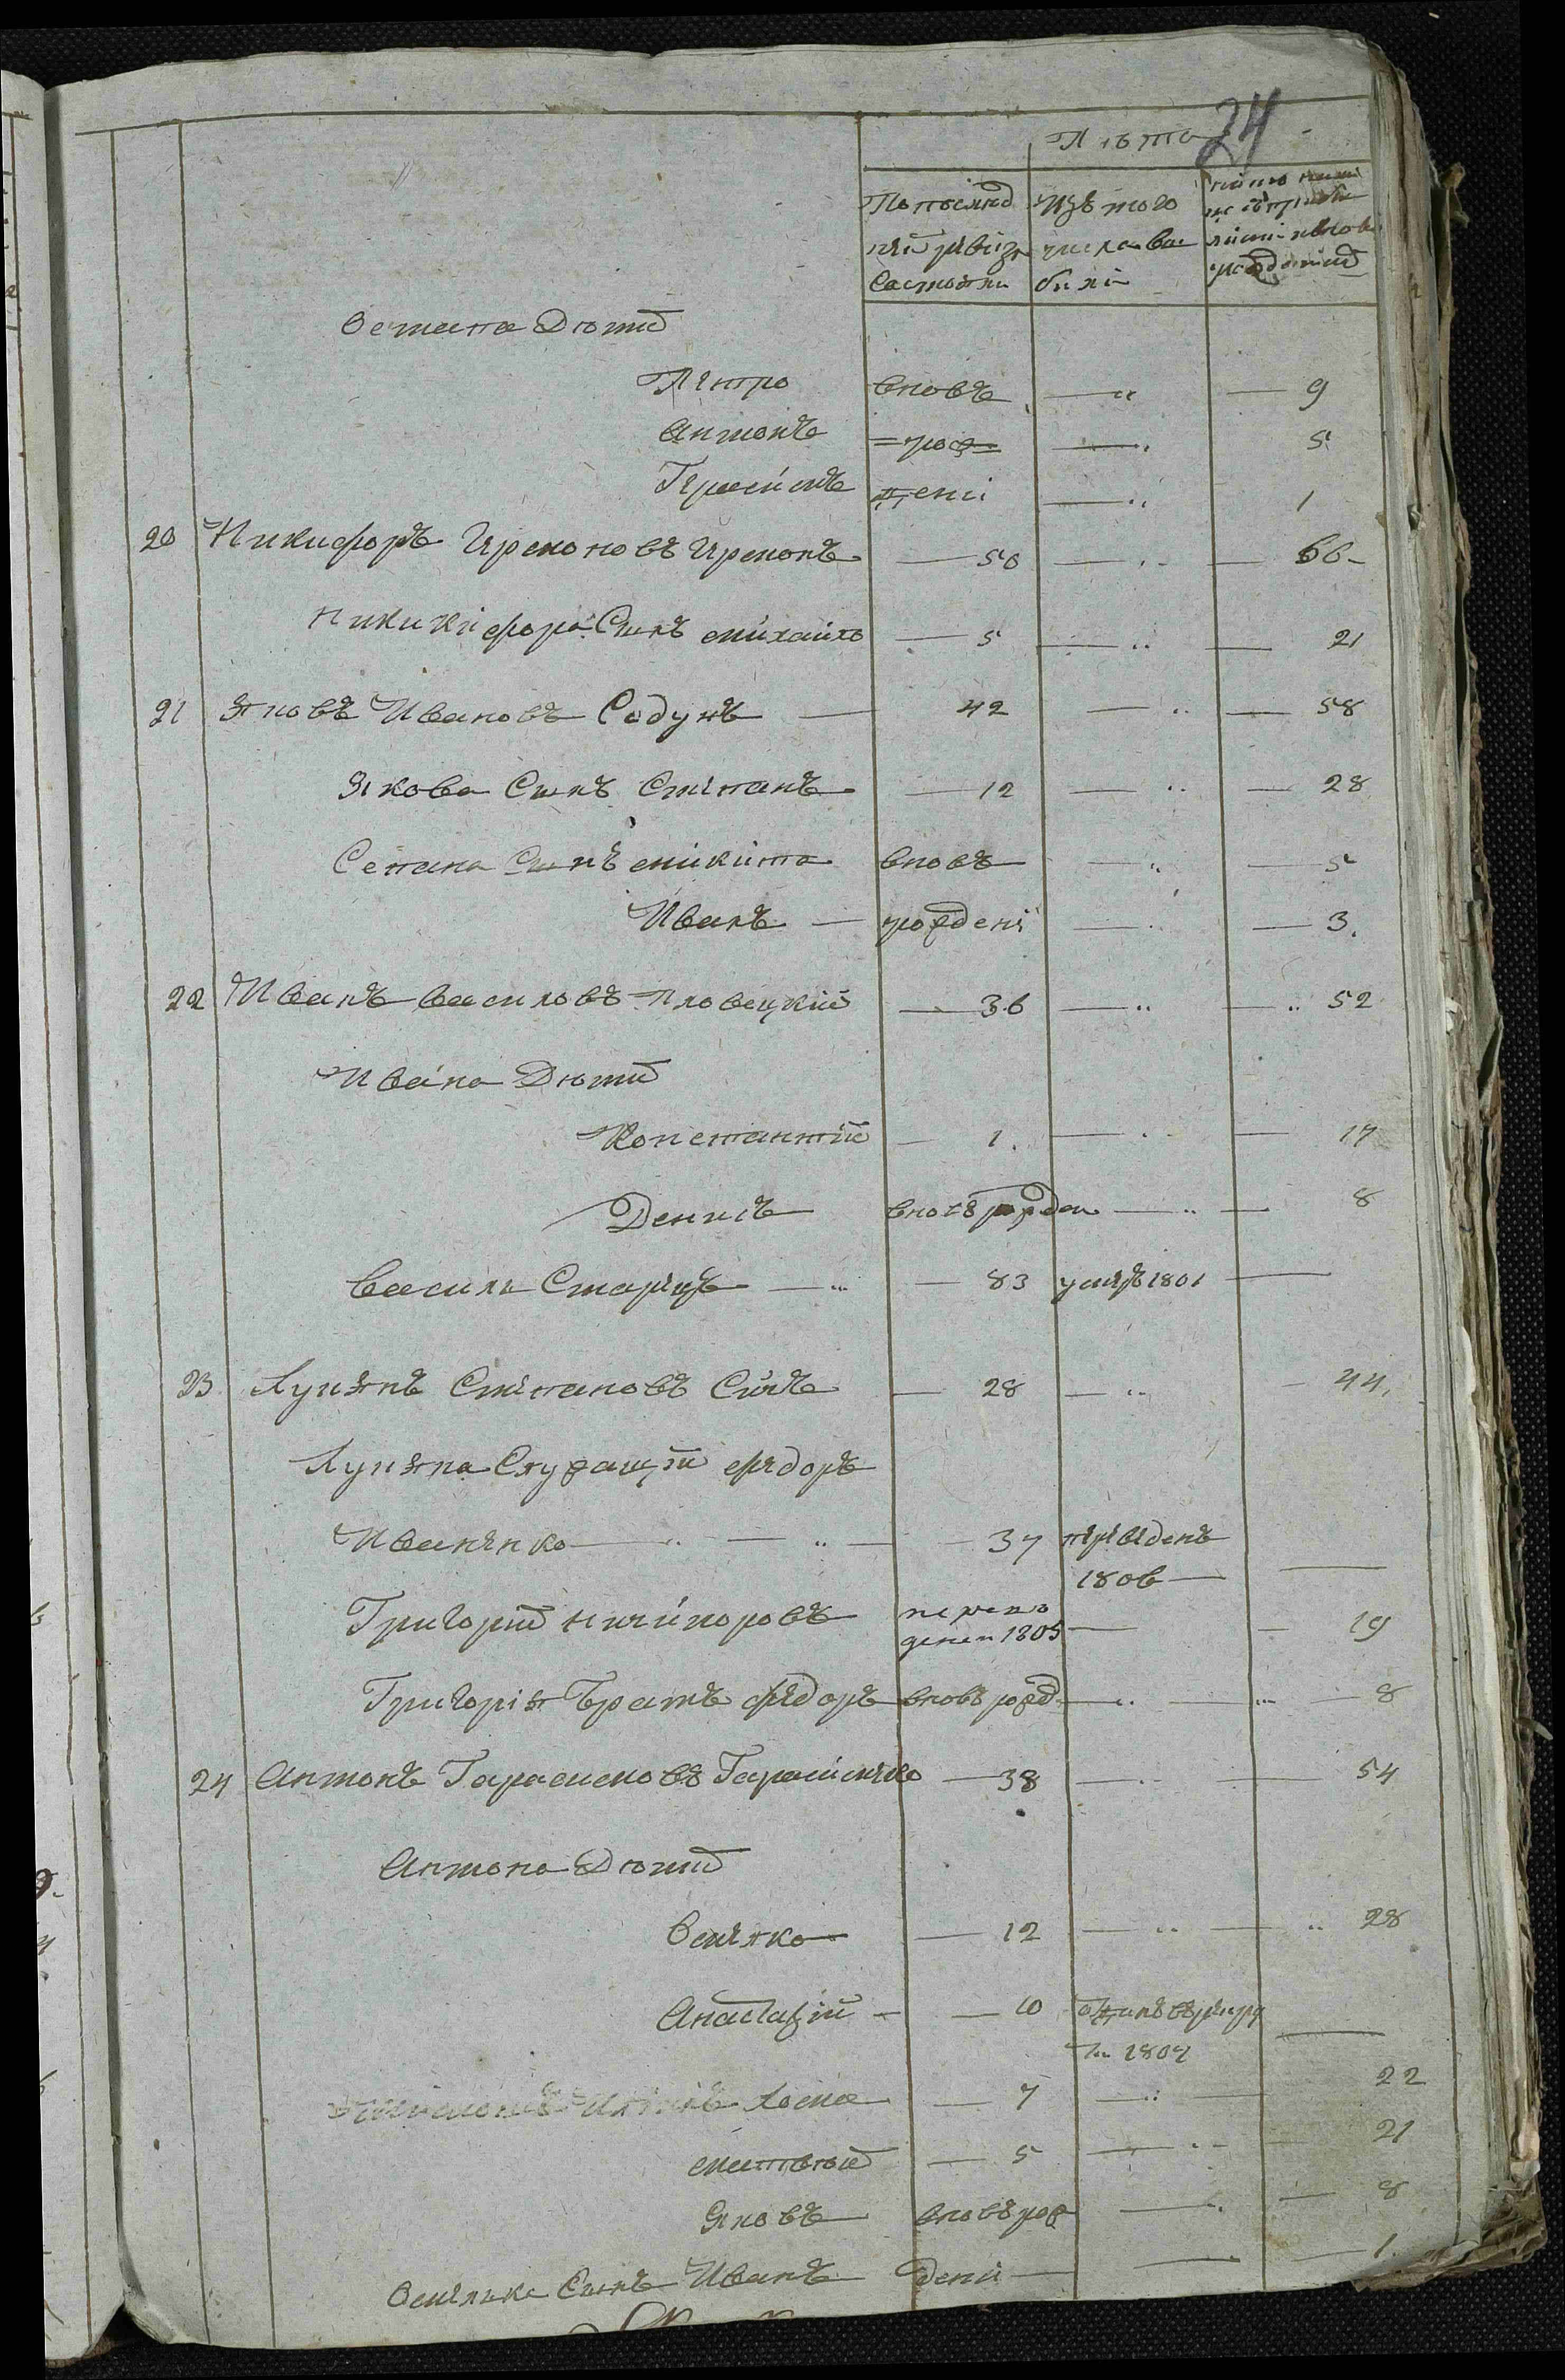 24
Лѣта
По послѣд ней ревизи состояли
Изъ того числа вы были
ныне на лицо
Остапа Дѣти
Петро вновь — 9
Антонъ =рож= — 5
Герасимъ дени — 1
20 Никифоръ Яремовъ Яремокъ — 50 — 66
Никикифора Сынъ михайло — 5 — 21
21 Яковъ Ивановъ Содукъ — 42 — 58
Якова Сынъ Степанъ — 12 — 28
Сепана Сынъ микита вновъ — 5
Иванъ — рожденi — 3.
22 Иванъ василовъ Пловецкий — 36 — 52
Ивана Дѣти
Константий — 1. — 17
Денисъ вновъ рожден — 8
Василь Старецъ — 83 умеръ 1801 —
23 Лукянъ Степановъ Сикъ — 28 — 44.
Лукяна Служащiй федоръ
Иваненко — 37 переведенъ
1806 —
Григорий ничипоровъ переве
денъ 1805 — 19
Григорiя Братъ федоръ вновъ рожд — 8
24 Антонъ Гарасимовъ Гарасименко — 38 — 54
Антона Дѣти
Омелко — 12 — 28
Анастазiй — 10
1807
Хома — 7 — 22
матвѣй — 5 — 21
Яковъ вновъ рож — 8
Омелька Сынъ Иванъ дени — 1.